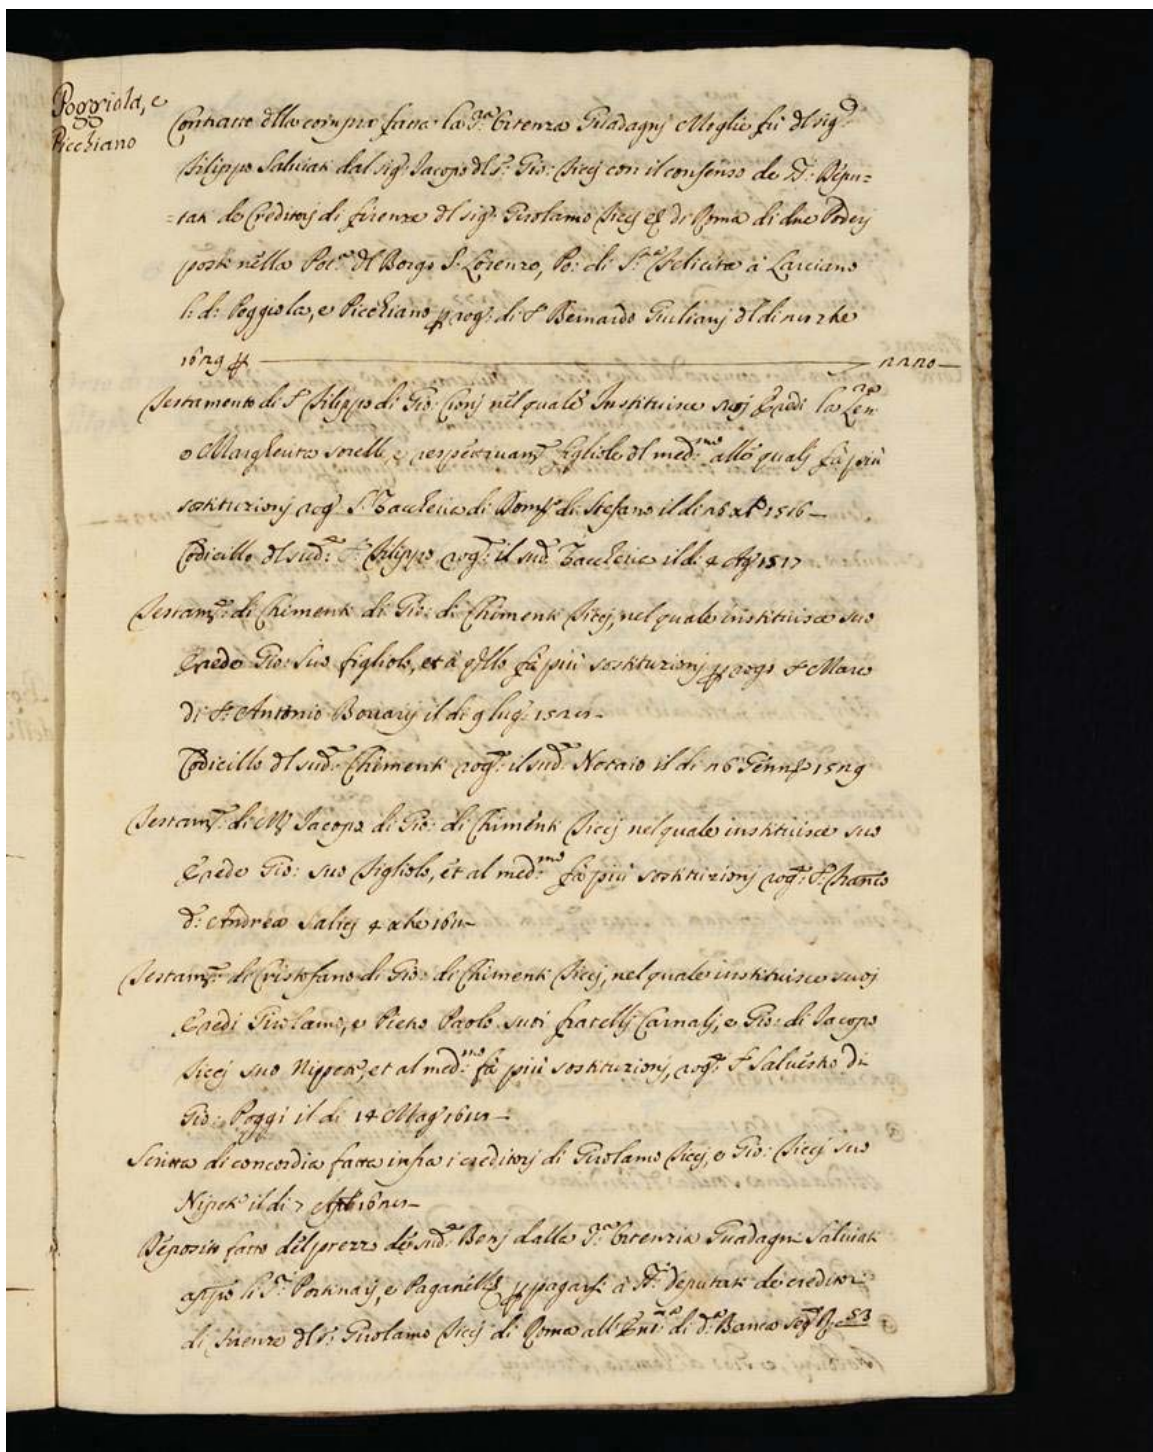 Poggiola, e
Picchiano
Contratto della compra fatta la Sra Ortenza Guadagnj Moglie fù del sig.r
Filippo Salviati dal sig.r Jacopo del S.r Gio: Riccj con il consenso de SS.ri Depu=
=tati de Creditorj di firenze del sig.r Girolamo Riccj di Roma di due Poderj
posti nella Pot.a del Borgo S. Lorenzo, Po: di S.ta Felicita à Larciano
l: d: Poggiola, e Picchiano rog: di S.r Bernardo Giulianj del di
1629
Testamento di S.r Filippo di Gio: Cionj nel quale Instituisce suoj Eredi la
e Margherita sorelle, e respettivam.te figliole del med.mo alle qualj fà più
sostituzionj rog. S. Zaccheria di Dom.co di Stefano il di 16 1516
Codicillo del sud.o S.r Filippo rog.o il sud.o Zaccheria il di 4 Ag.o 1517
Testam.to di Chimenti di Gio: di Chimenti Riccj, nel quale instituisce suo
Erede Gio: suo figliolo, et à q.llo fà più sostituzionj rogò S.r Marco
di S.r Antonio il di 9 lug.o
Codicillo del sud.o Chimenti rog.o il sud.o Notaio il di 16 Genn.o 1529
Testam.to di M. Jacopo di Gio: di Chimenti Riccj nel quale instituisce suo
Erede Gio: suo figliolo, et al med.mo fà più sostituzionj rog.o S.r Franco
d: Andrea 4
Testam.to di Cristofano di Gio: di Chimenti Riccj, nel quale instituisce suoj
Eredi Girolamo, e Pietro Paolo suoi fratellj Carnalj, e Gio: di Jacopo
Riccj suo Nipote, et al med.mo fà più sostituzionj, rog.o S.r Salvestro di
Gio: Poggi il di 14 Mag.o
Scritta di concordia fatta infra i creditorj di Girolamo Riccj, e Gio: Riccj suo
Nipote il di 7
Deposito fatto del prezzo de sud.i Benj dalla S.ra Ortenzia Guadagni Salviati
app.o li S.ri Portinarj, e Paganellj pagarsi à SS.ri deputati de creditori
di firenze del S.r Girolamo Riccj di Roma di d.o Banco 53